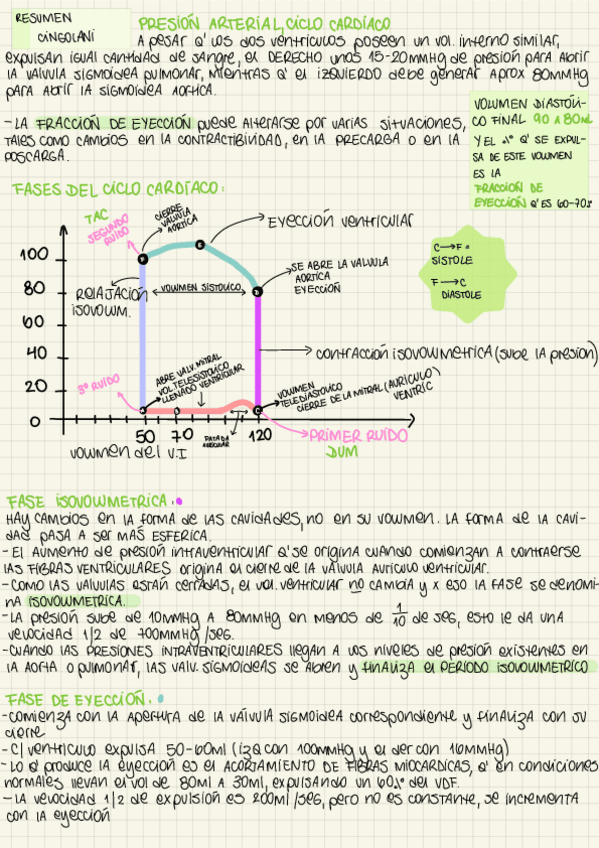 RESUMEN
CINGOLANI
PRESIÓN ARTERIAL, CICLO CARDÍACO
A PESAR Q' LOS DOS VENTRÍCULOS POSEEN UN VOL. INTERNO SIMILAR,
EXPULSAN IGUAL CANTIDAD DE SANGRE, EL DERECHO UNOS 15-20mmHg DE PRESIÓN PARA ABRIR
LA VALVULA SIGMOIDEA PULMONAR, MIENTRAS Q' EL IZQUIERDO DEBE GENERAR APROX 80mmHg
PARA ABRIR LA SIGMOIDEA AORTICA.
- LA FRACCIÓN DE EYECCIÓN PUEDE ALTERARSE POR VARIAS SITUACIONES,
TALES COMO CAMBIOS EN LA CONTRACTIBIVIDAD, EN LA PRECARGA O EN LA
POSCARGA.
VOLUMEN DIASTÓLI-
CO FINAL 90 A 80ml
Y EL .%° Q' SE EXPUL-
SA DE ESTE VOLUMEN
ES LA
FRACCIÓN DE
EYECCIÓN Q' ES 60-70%
FASES DEL CICLO CARDÍACO:
TAC
SEGUNDO
RUIDO
CIERRE
VALVULA
AORTICA
EYECCIÓN VENTRICULAR
C → F =
SÍSTOLE
F → C
DIASTOLE
100
80
60
40
20
0
RELAJACIÓN
ISOVOLUM.
VOLUMEN SISTOLICO
SE ABRE LA VALVULA
AORTICA
EYECCIÓN
CONTRACCIÓN ISOVOLUMETRICA (SUBE LA PRESION)
3° RUIDO
ABRE VALV. MITRAL
VOL TELESISTOLICO
LLENADO VENTRICULAR
VOLUMEN
TELEDIASTOLICO
CIERRE DE LA MITRAL (AURICULO)
VENTRIC
PATADA
AURICULAR
50 70 120
VOLUMEN DEL V.I
PRIMER RUIDO
DUM
FASE ISOVOLUMETRICA.
HAY CAMBIOS EN LA FORMA DE LAS CAVIDADES, NO EN SU VOLUMEN. LA FORMA DE LA CAVI-
DAD PASA A SER MAS ESFERICA.
- EL AUMENTO DE PRESIÓN INTRAVENTRICULAR Q' SE ORIGINA CUANDO COMIENZAN A CONTRAERSE
LAS FIBRAS VENTRICULARES ORIGINA EL CIERE DE LA VÁLVULA AURICULO VENTRICULAR.
- COMO LAS VALVULAS ESTÁN CERRADAS, EL VOL. VENTRICULAR NO CAMBIA Y X ESO LA FASE SE DENOMI-
NA ISOVOLUMETRICA.
- LA PRESIÓN SUBE DE 10mmHg A 80mmHg EN MENOS DE 1/10 DE SEG, ESTO LE DA UNA
VELOCIDAD 1/2 DE 700mmHg/SEG.
- CUANDO LAS PRESIONES INTRAVENTRICULARES LLEGAN A LOS NIVELES DE PRESION EXISTENTES EN
LA AORTA O PULMONAR, LAS VALV. SIGMOIDEAS SE ABREN Y FINALIZA EL PERÍODO ISOVOLUMETRICO
FASE DE EYECCIÓN.
- COMIENZA CON LA APERTURA DE LA VÁLVULA SIGMOIDEA CORRESPONDIENTE Y FINALIZA CON SU
CIERRE
- C/ VENTRICULO EXPULSA 50-60ml (IZQ CON 100mmHg Y EL DER CON 16mmHg)
- LO Q' PRODUCE LA EYECCIÓN ES EL ACORTAMIENTO DE FIBRAS MIOCARDICAS, Q' EN CONDICIONES
NORMALES LLEVAN EL VOL DE 80ml A 30ml, EXPULSANDO UN 60% DEL VDF.
- LA VELOCIDAD 1/2 DE EXPULSIÓN ES 200ml/SEG, PERO NO ES CONSTANTE, SE INCREMENTA
CON LA EYECCIÓN